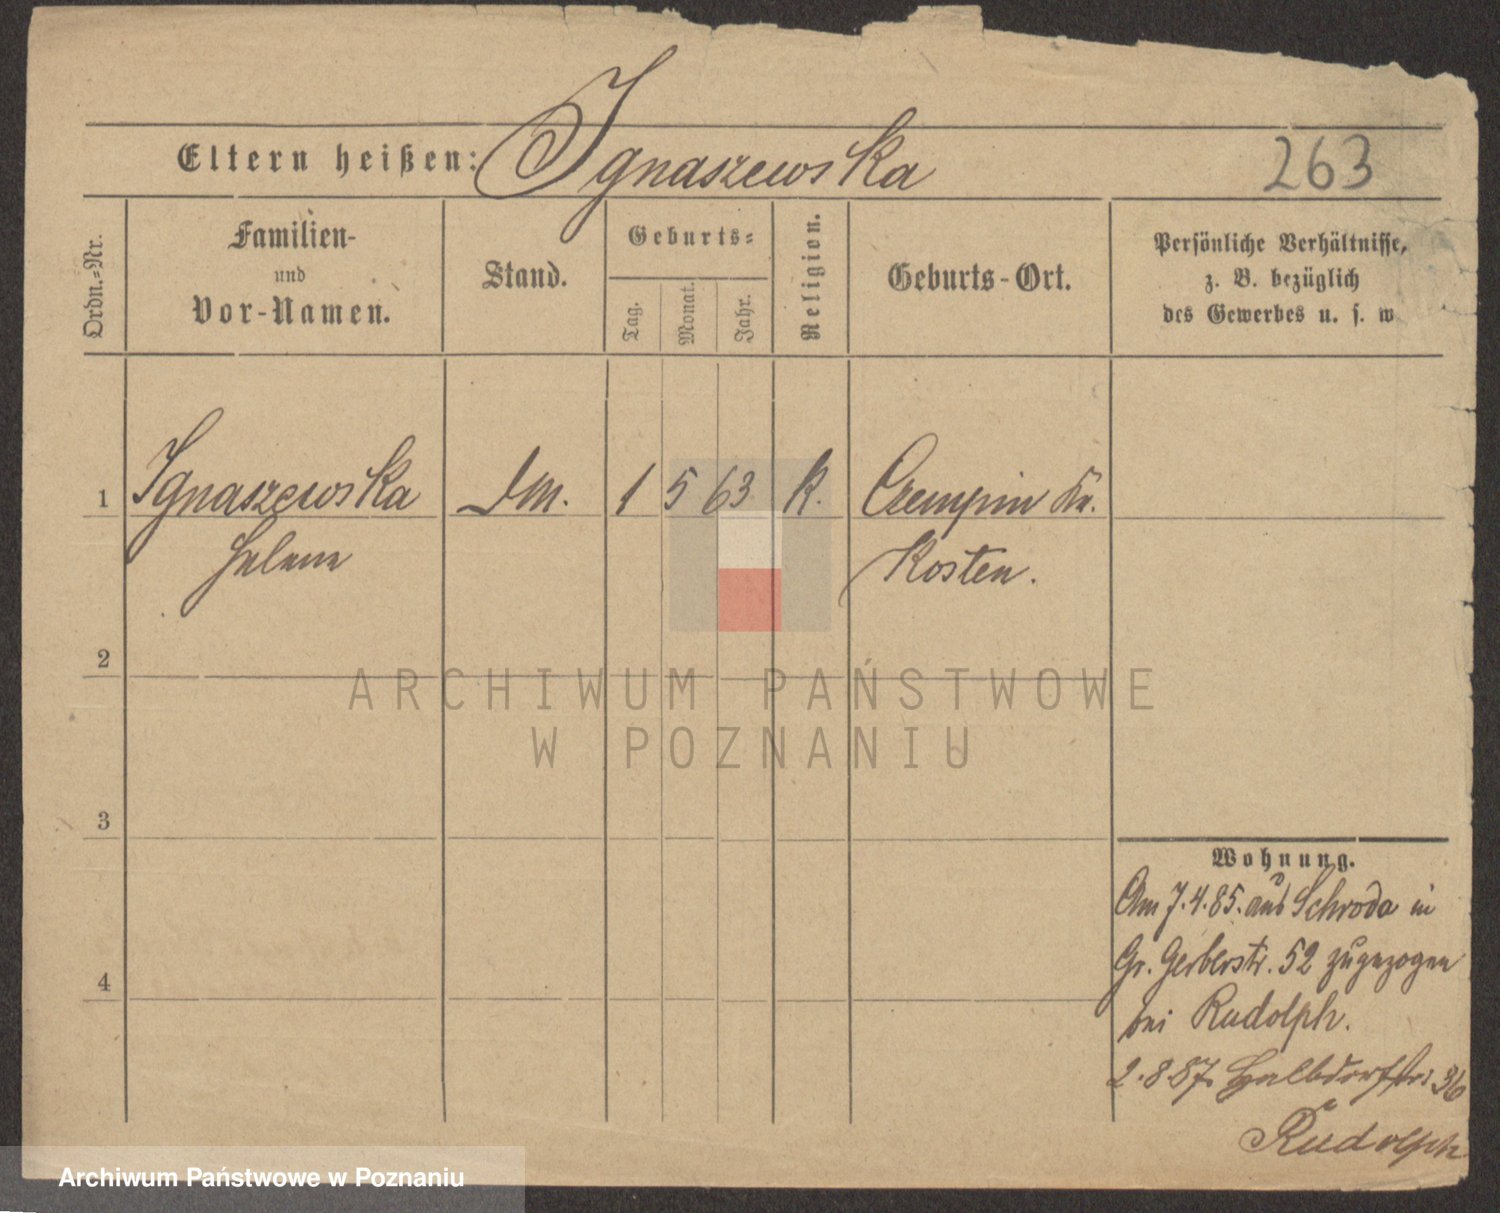 Eltern heißen: Ignaszewska
263
Ordn.-Nr.
Familien-
und
Vor-Namen.
Stand.
Geburts-
Tag.
Monat.
Jahr.
Religion.
Geburts-Ort.
Persönliche Verhältnisse,
z. B. bezüglich
des Gewerbes u. s. w
1 Ignaszewska Dm. 1 5 63 K. Czempin Kr.
Helene Kosten.
2
3
4
Wohnung.
Am 7.4.85. aus Schroda in
Gr. Gerberstr. 52 zugezogen
bei Rudolph.
2.8 87. Halbdorfstr. 36
Rudolph
ARCHIWUM PAŃSTWOWE
W POZNANIU
Archiwum Państwowe w Poznaniu